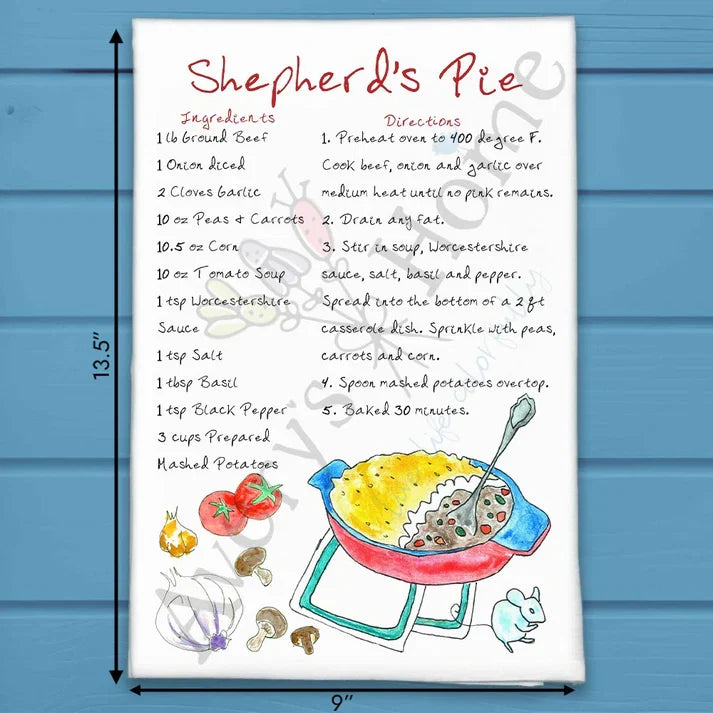 Shepherd's Pie
Ingredients
1 lb Ground Beef
1 Onion diced
2 Cloves Garlic
10 oz Peas & Carrots
10.5 oz Corn
10 oz Tomato Soup
1 tsp Worcestershire
Sauce
1 tsp Salt
1 tbsp Basil
1 tsp Black Pepper
3 cups Prepared
Mashed Potatoes
Directions
1. Preheat oven to 400 degree F.
Cook beef, onion and garlic over
medium heat until no pink remains.
2. Drain any fat.
3. Stir in soup, Worcestershire
sauce, salt, basil and pepper.
Spread into the bottom of a 2 qt
casserole dish. Sprinkle with peas,
carrots and corn.
4. Spoon mashed potatoes overtop.
5. Baked 30 minutes.
Avory's Home
life colorfully
13.5"
9"